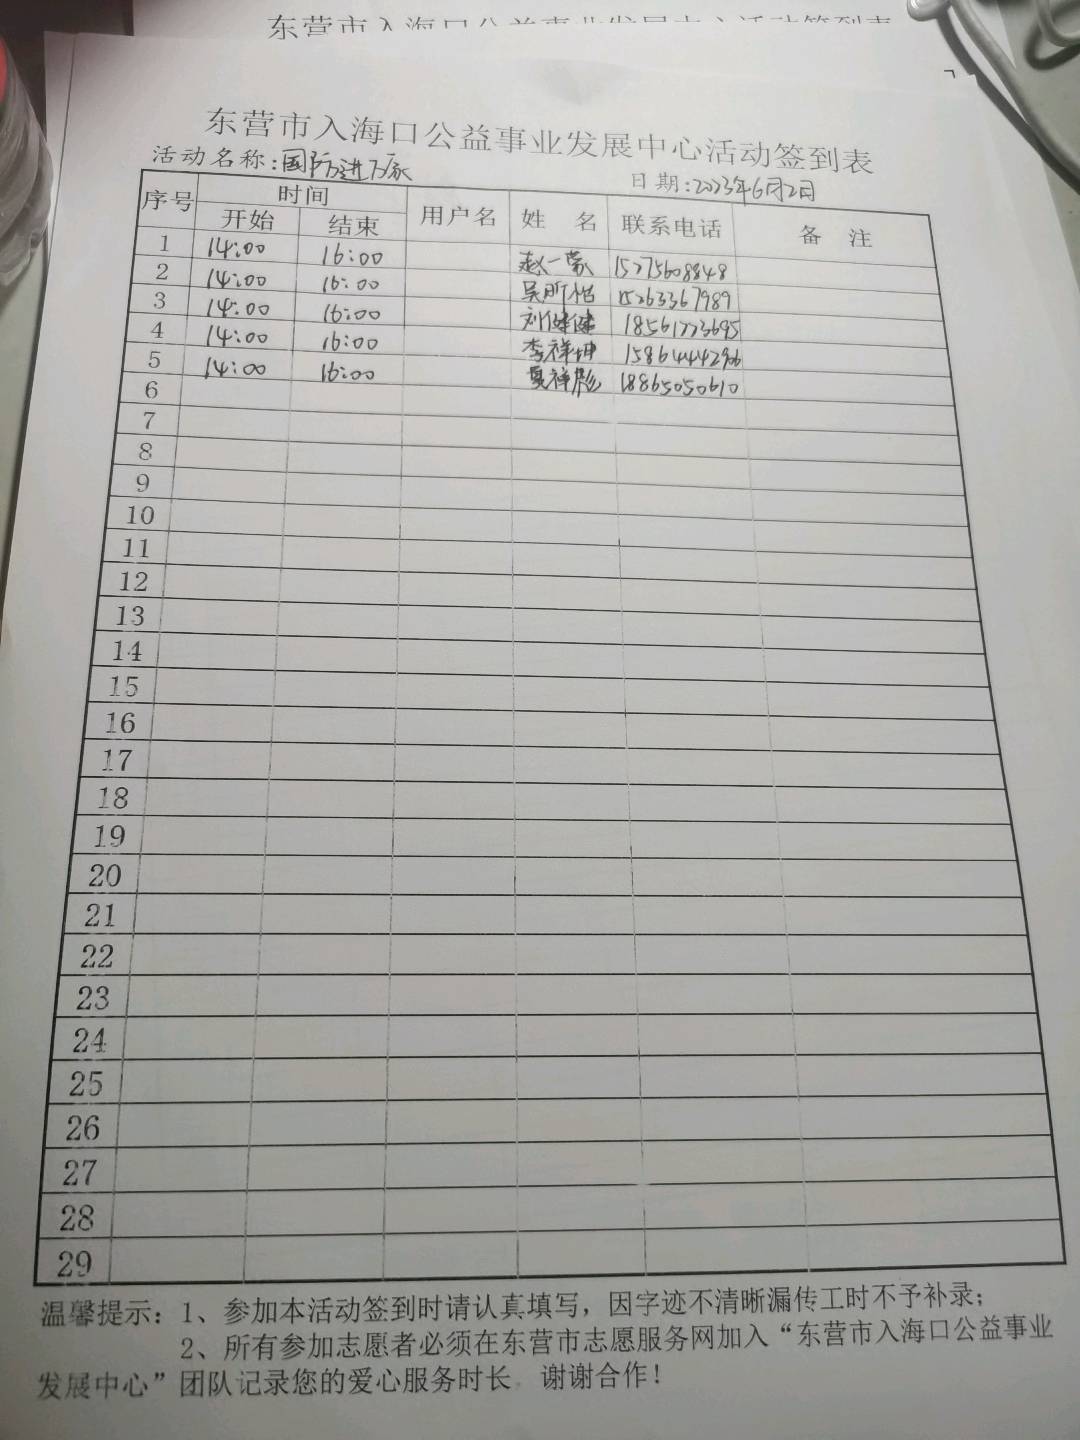 东营市入海口公益事业发展中心活动签到表
东营市入海口公益事业发展中心活动签到表
活动名称:国防进万家 日期:2023年6月2日
序号 时间 用户名 姓 名 联系电话 备 注
开始 结束
1 14:00 16:00 赵一蒙 15275608848
2 14:00 16:00 吴昕怡 15263367989
3 14:00 16:00 刘健健 18561223695
4 14:00 16:00 李祥坤 15864442906
5 14:00 16:00 夏禅彪 18865050610
6
7
8
9
10
11
12
13
14
15
16
17
18
19
20
21
22
23
24
25
26
27
28
29
温馨提示：1、参加本活动签到时请认真填写，因字迹不清晰漏传工时不予补录；
2、所有参加志愿者必须在东营市志愿服务网加入“东营市入海口公益事业
发展中心”团队记录您的爱心服务时长，谢谢合作！